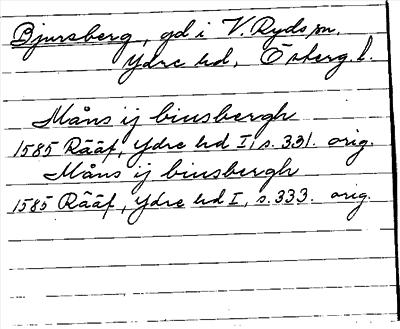 Bjursberg, gd i V. Ryds sn.
Ydre hd, Österg. l.
Måns ij biusbergh
1585 Rääf, Ydre hd I, s. 331. orig.
Måns ij biusbergh
1585 Rääf, Ydre hd I, s. 333. orig.